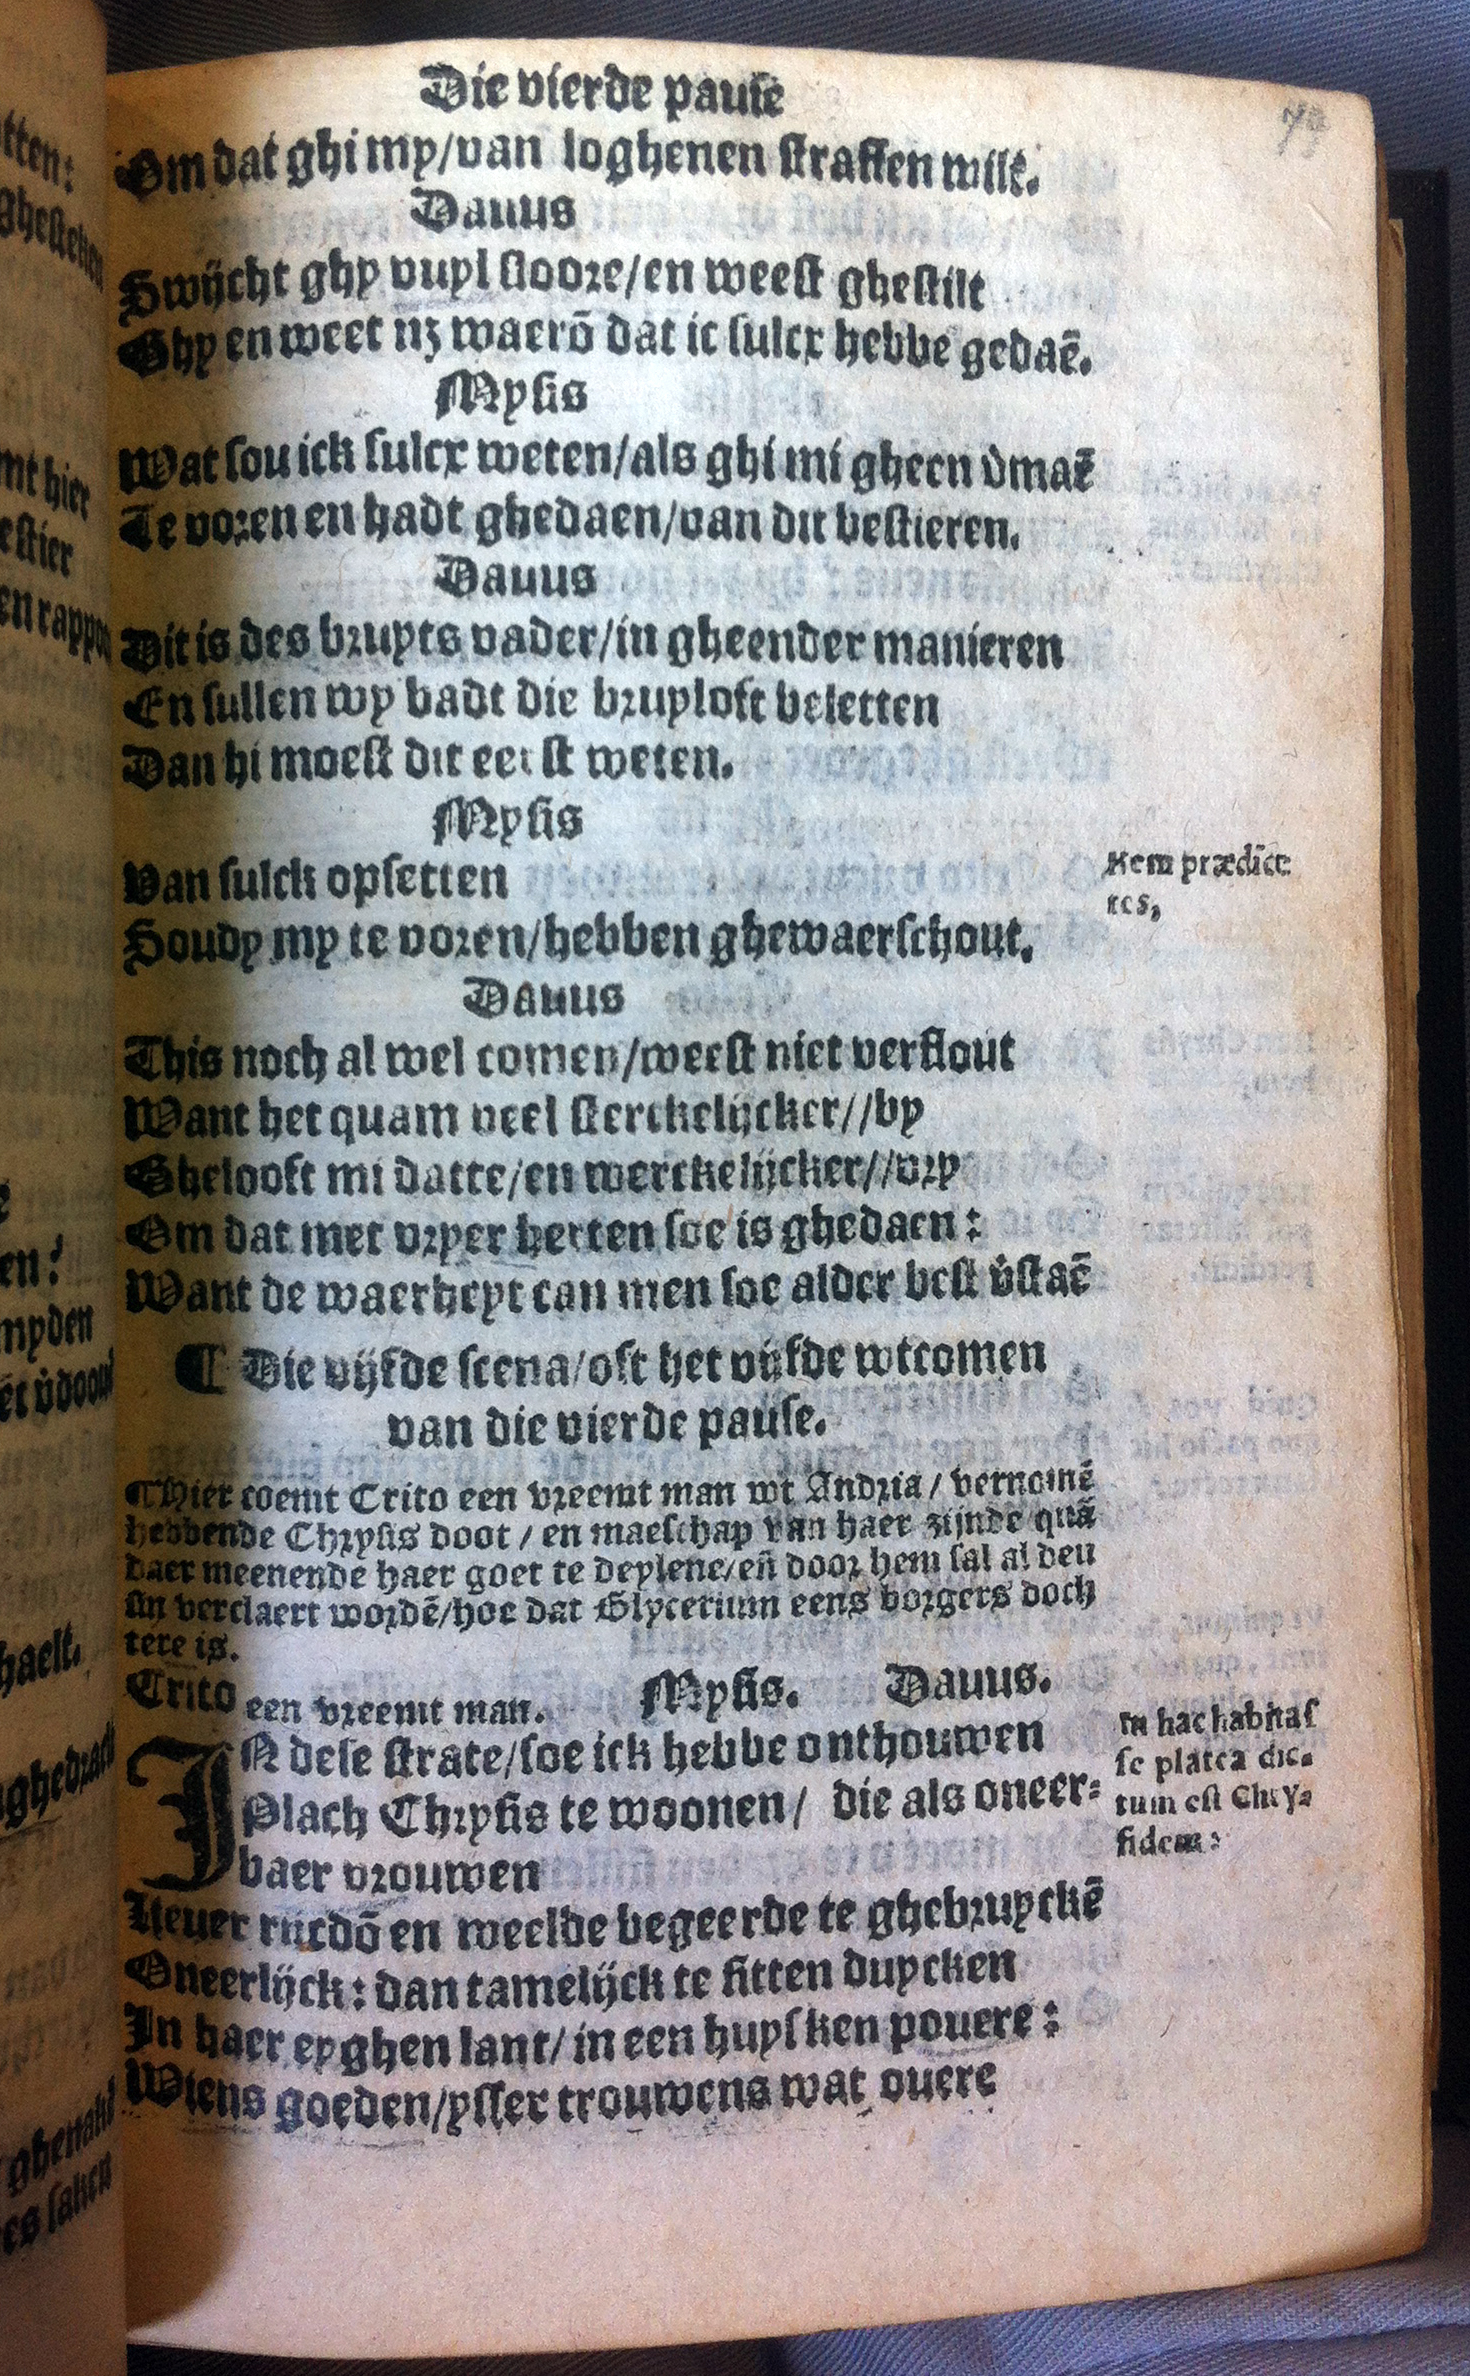 Die vierde pause
73
Om dat ghi my/van loghenen straffen wilt.
Dauus
Swijcht ghy vuyl sloore/en weest ghestilt
Ghy en weet nz waerõ dat ic sulcx hebbe gedaẽ.
Mysis
Wat sou ick sulcx weten/als ghi mi gheen v̄maẽ
Te voren en hadt ghedaen/van dit bestieren.
Dauus
Dit is des bruyts vader/in gheender manieren
En sullen wy badt die bruyloft beletten
Dan hi moest dit eerst weten.
Mysis
Van sulck opsetten
Soudy my te voren/hebben ghewaerschout.
Rem prædicẽ
tes,
Dauus
This noch al wel comen/weest niet verflout
Want het quam veel sterckelijcker//by
Ghelooft mi datte/en werckelijcker//vry
Om dat met vryer herten soe is ghedaen:
Want de waerheyt can men soe alder best v̄staẽ
¶ Die vijfde scena/oft het vijfde wtcomen
van die vierde pause.
¶Hier coemt Crito een vreemt man wt Andria/ vernomẽ
hebbende Chrysis doot / en maeschap van haer zijnde quã
daer meenende haer goet te deylene/eñ door hem sal al den
sin verclaert wordẽ/hoe dat Glycerium eens borgers doch
tere is.
Crito een vreemt man. Mysis. Dauus.
IN dese strate/soe ick hebbe onthouwen
Plach Chrysis te woonen/ die als oneer-
baer vrouwen
In hac habitas
se platea dic-
tum est Chry-
sidem:
Lieuer rijcdõ en weelde begeerde te ghebruyckẽ
Oneerlijck: dan tamelijck te sitten duycken
In haer eyghen lant/in een huysken pouere:
Wiens goeden/ysser trouwens wat ouere